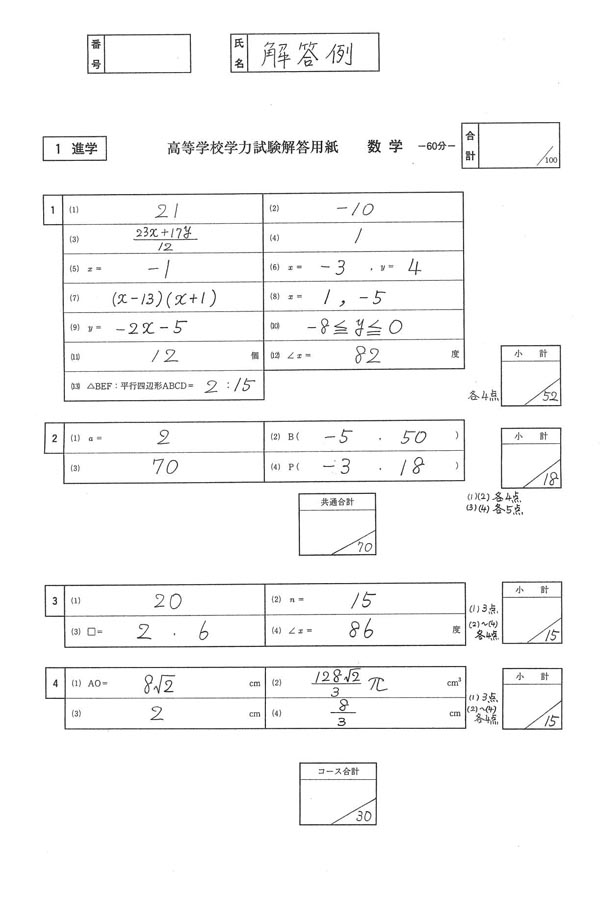 番号
氏名 解答例
1 進学 高等学校学力試験解答用紙 数学 −60分− 合計 /100
1 (1) 21 (2) −10
(3) 23x+17y/12 (4) 1
(5) x = −1 (6) x = −3 , y = 4
(7) (x−13)(x+1) (8) x = 1 , −5
(9) y = −2x−5 (10) −8≦y≦0
(11) 12 個 (12) ∠x = 82 度
(13) △BEF：平行四辺形ABCD = 2 : 15
各4点 小計 52
2 (1) a = 2 (2) B( −5 , 50 )
(3) 70 (4) P( −3 , 18 )
小計 18
(1)(2) 各4点
(3)(4) 各5点
共通合計
70
3 (1) 20 (2) n = 15
(3) □= 2 , 6 (4) ∠x = 86 度
(1) 3点
(2)~(4)
各4点
小計 15
4 (1) AO = 8√2 cm (2) 128√2/3 π cm³
(3) 2 cm (4) 8/3 cm
(1) 3点
(2)~(4)
各4点
小計 15
コース合計
30